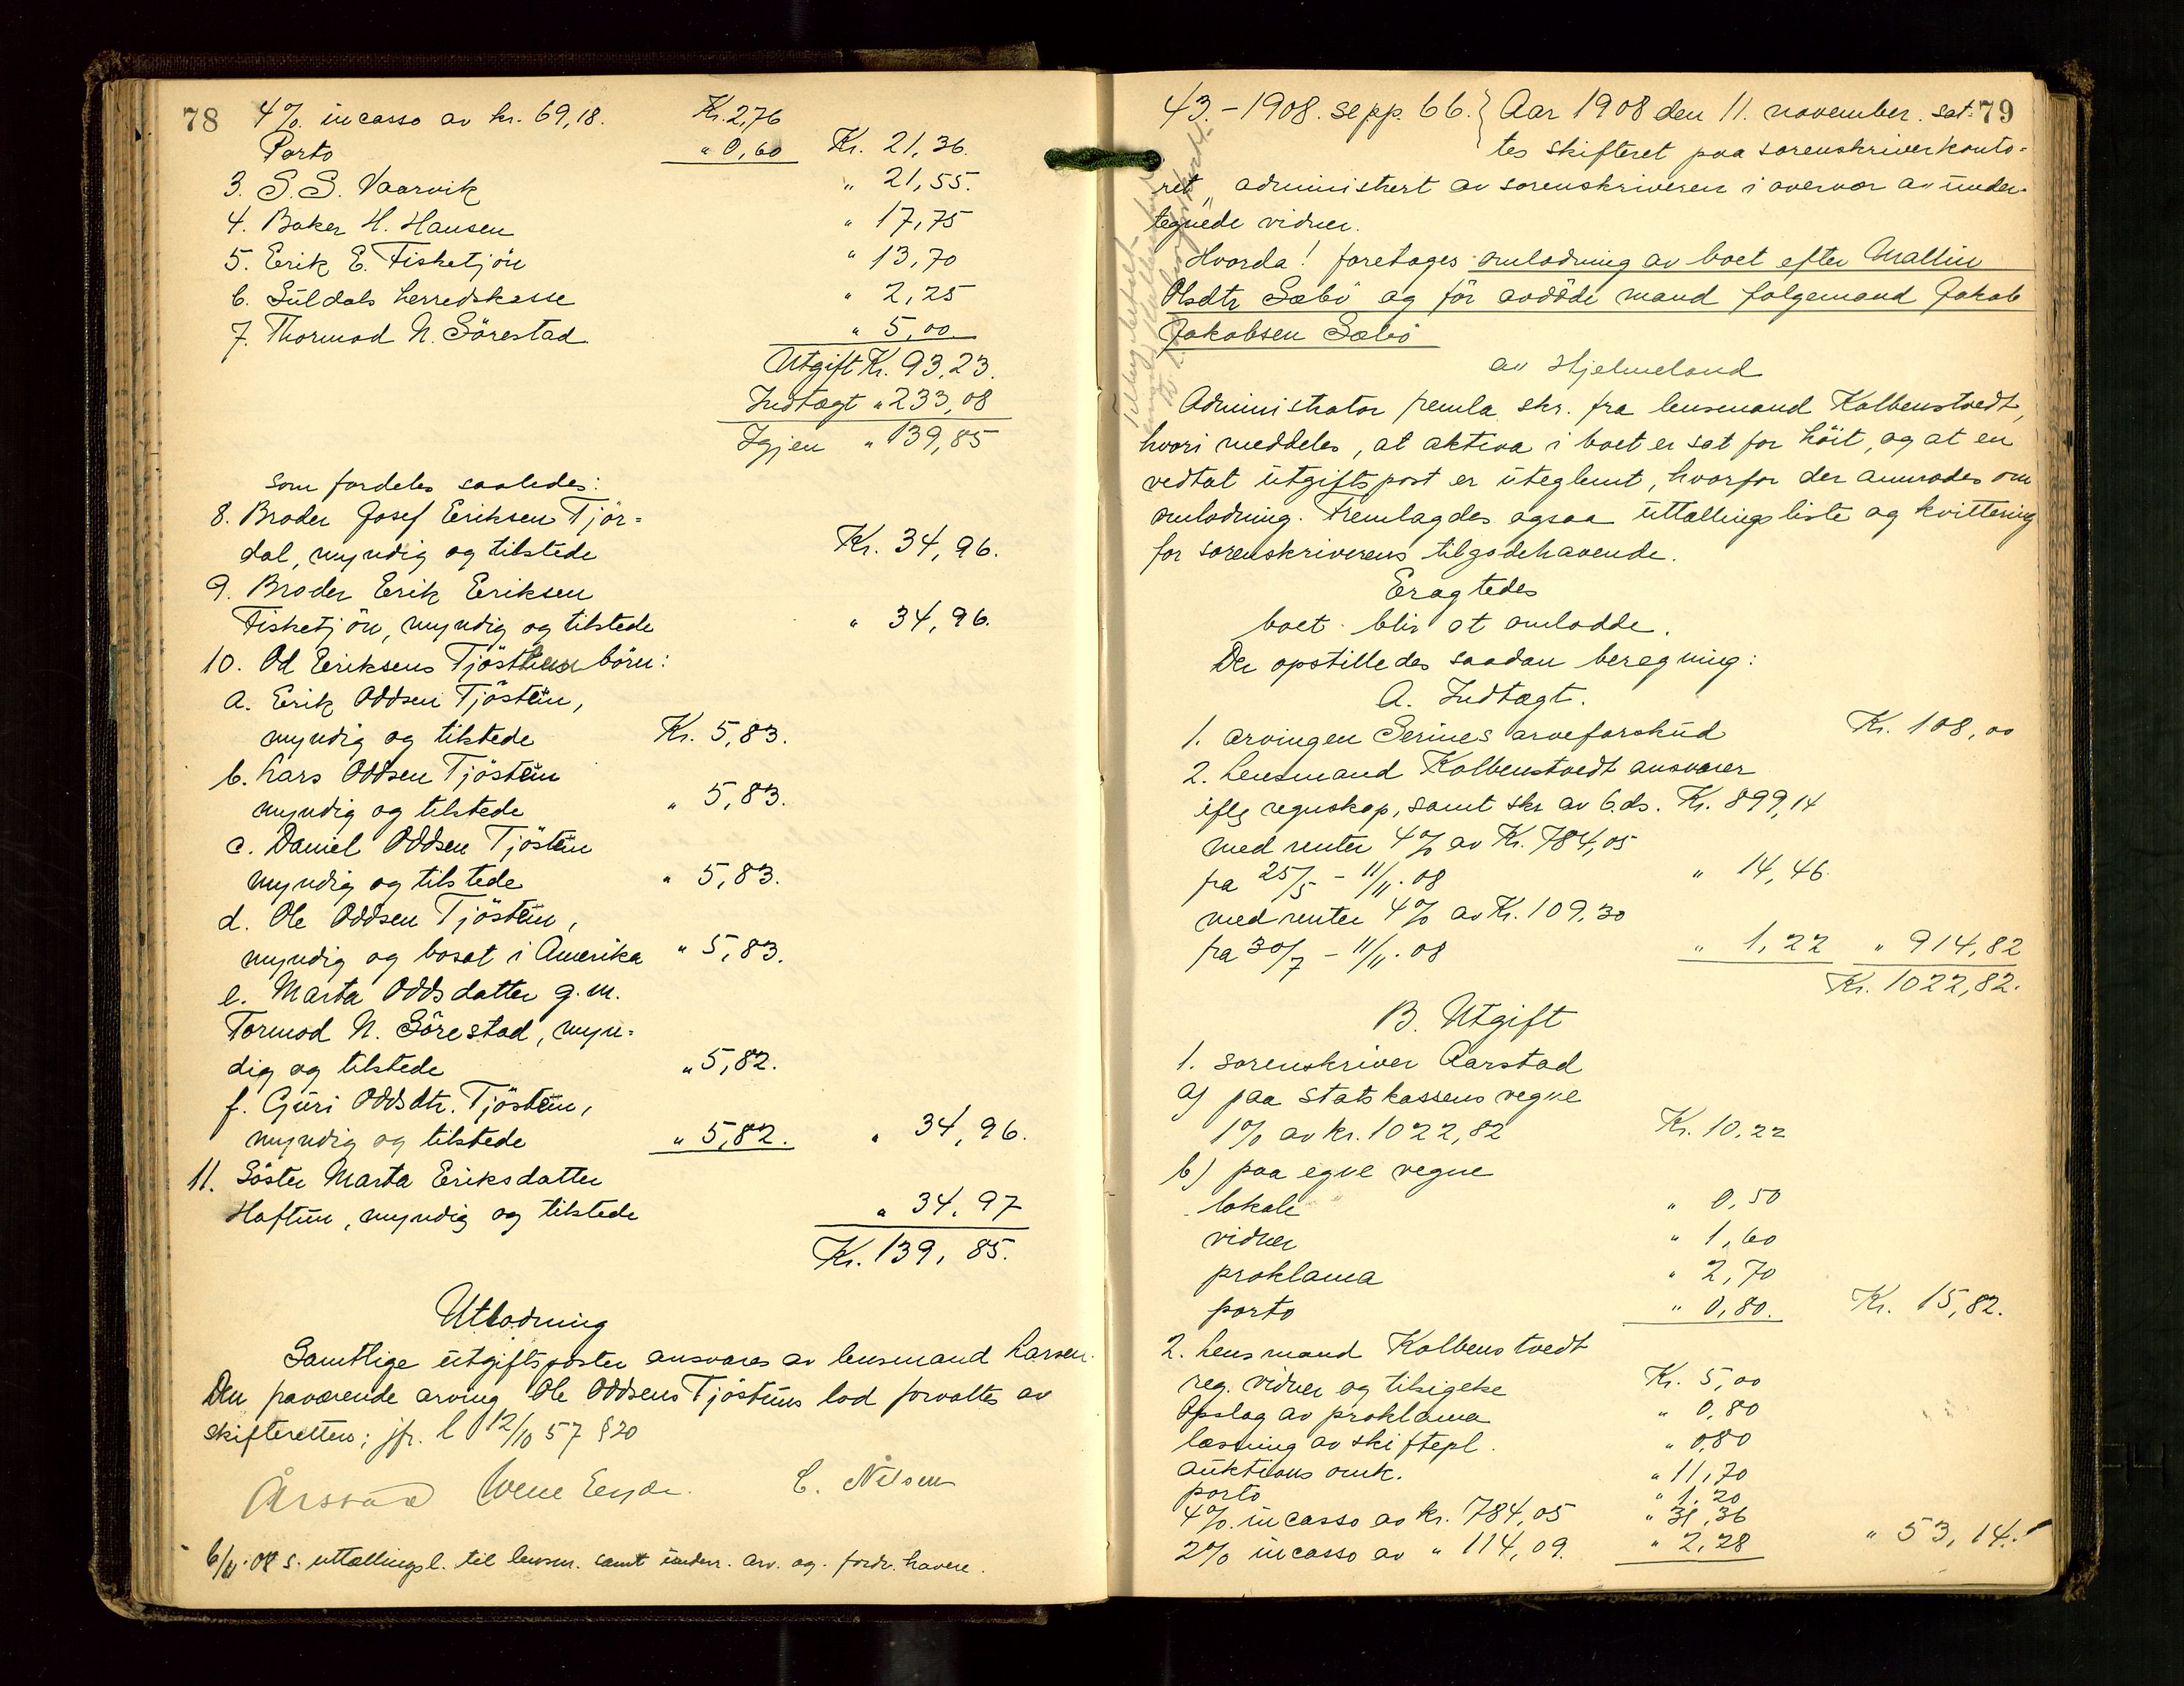 78
4% incasso av kr. 69,18. Kr. 2,76
Porto " 0,60 Kr. 21,36.
3. S. S. Vaarvik " 21,55.
4. Baker H. Hansen " 17,75
5. Erik E. Fisketjön " 13,70
6. Suldals herredskasse " 2,25
7. Thormod N. Sörestad " 5,00
Utgift Kr. 93,23.
Indtægt " 233,08
Igjen " 139,85
som fordeles saaledes:
8. Broder Josef Eriksen Tjör=
dal, myndig og tilstede Kr. 34,96.
9. Broder Erik Eriksen
Fisketjön, myndig og tilstede " 34,96.
10. Od Eriksens Tjösteins börn:
a. Erik Oddsen Tjöstein,
myndig og tilstede Kr. 5,83.
b. Lars Oddsen Tjöstein
myndig og tilstede " 5,83.
c. Daniel Oddsen Tjöstein
myndig og tilstede " 5,83.
d. Ole Oddsen Tjöstein,
myndig og bosat i Amerika " 5,83.
e. Marta Oddsdatter g. m.
Tormod N. Sörestad, myn=
dig og tilstede " 5,82.
f. Guri Oddsdtr. Tjöstein,
myndig og tilstede " 5,82. " 34,96.
11. Söster Marta Eriksdatter
Haftun, myndig og tilstede " 34,97
Kr. 139,85.
Utlodning
Samtlige utgiftsposter ansvares av lensmand Larsen.
Den fraværende arving Ole Oddsens Tjösteins lod forvaltes av
skifteretten; jfr. l 12/10 57 § 20
Årstad C. Nilsen
6/11.08 s. uttællingsl. til lensm. samt underr. arv. og fordr.havere.
79
43.-1908. se pp. 66. } Aar 1908 den 11. november. sat=
tes skifteret paa sorenskriverkonto=
ret, administrert av sorenskriveren i overvær av under=
tegnede vidner.
Hvorda! foretages omlodning av boet efter Mallin
Olsdtr Sæbö og för avdöde mand folgemand Jakob
Jakobsen Sæbö
av Hjelmeland
Administrator fremla skr. fra lensmand Kolbenstvedt,
hvori meddeles, at aktiva i boet er sat for höit, og at en
vedtat utgiftspost er uteglemt, hvorfor der anmodes om
omlodning. Fremlagdes ogsaa uttællingsliste og kvittering
for sorenskriverens tilgodehavende.
Eragtedes
boet blir at omlodde.
Der opstilledes saadan beregning:
A. Indtægt.
1. arvingen Serines arveforskud Kr. 108,00
2. Lensmand Kolbenstvedt ansvarer
iflg regnskap, samt skr av 6. ds. Kr. 899,14
med renter 4% av Kr. 784,05
fra 25/5 - 11/11.08 " 14,46
med renter 4% av Kr. 109,30
fra 30/7 - 11/11.08 " 1,22 " 914,82
Kr. 1022,82.
B. Utgift
1. sorenskriver Aarstad
a) paa statskassens vegne
1% av kr. 1022,82 Kr. 10,22
b) paa egne vegne
lokale " 0,50
vidner " 1,60
proklama " 2,70
porto " 0,80. Kr. 15,82.
2. Lensmand Kolbenstvedt
reg. vidner og tilsigelse Kr. 5,00
Opslag av proklama " 0,80
læsning av skiftepl. " 0,80
auktions omk. " 11,70
porto " 1,20
4% incasso av kr. 784,05 " 31,36
2% incasso av " 114,09. " 2,28 " 53,14.